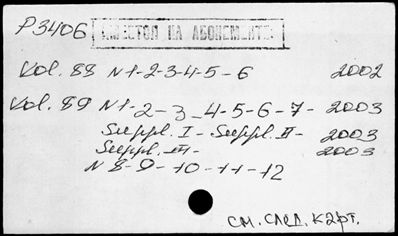 P3406 ИМЕЕТСЯ НА АБОНЕМЕНТЕ
Vol. 88 N 1-2-3-4-5-6 2002
Vol. 89 N 1-2-3-4-5-6-7- 2003
Suppl. I - Suppl. II - 2003
Suppl. III - 2003
N 8-9-10-11-12
см. след. карт.